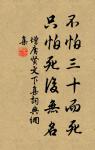 不怕三十而死
只怕死後無名
增廣賢文下集詞典網
集